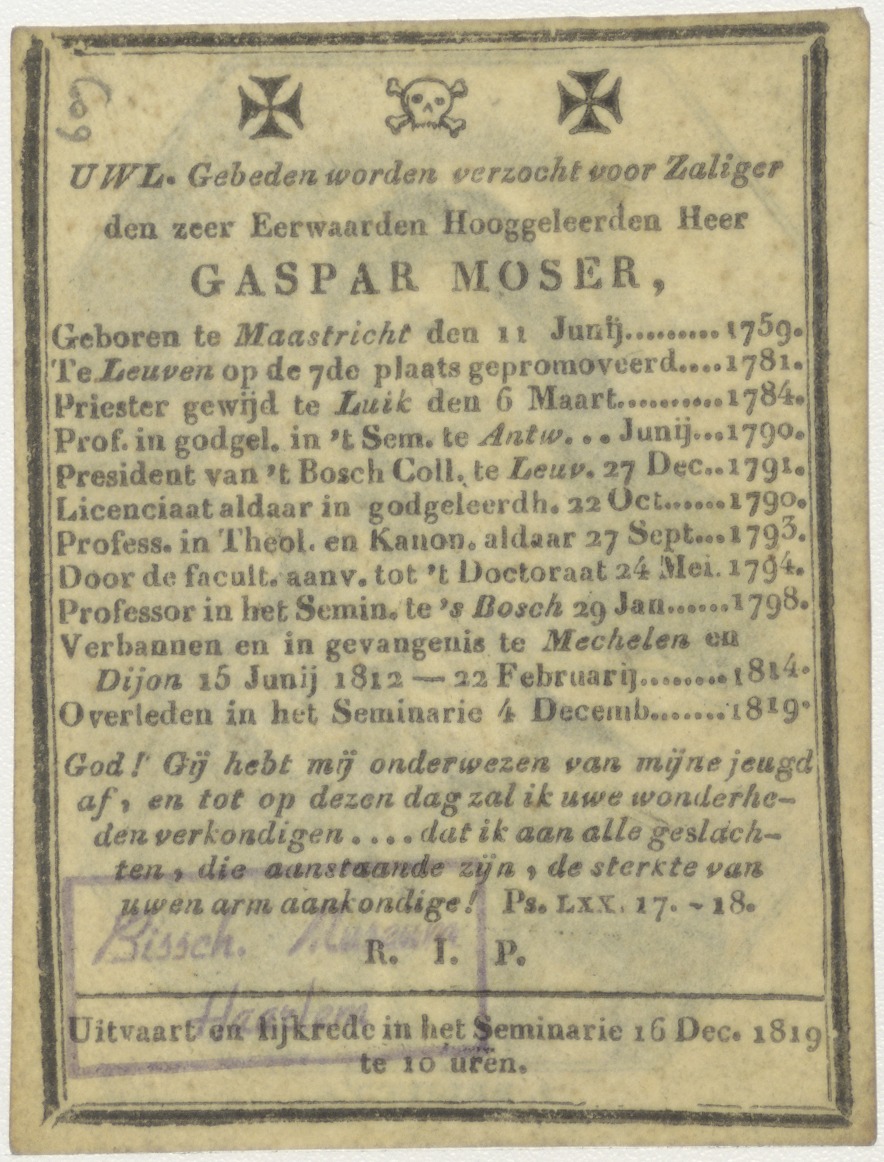 609
UWL. Gebeden worden verzocht voor Zaliger
den zeer Eerwaarden Hooggeleerden Heer
GASPAR MOSER,
Geboren te Maastricht den 11 Junij.........1759.
Te Leuven op de 7de plaats gepromoveerd....1781.
Priester gewijd te Luik den 6 Maart..........1784.
Prof. in godgel. in 't Sem. te Antw. .. Junij...1790.
President van 't Bosch Coll. te Leuv. 27 Dec..1791.
Licenciaat aldaar in godgeleerdh. 22 Oct......1790.
Profess. in Theol. en Kanon. aldaar 27 Sept...1793.
Door de facult. aanv. tot 't Doctoraat 24 Mei. 1794.
Professor in het Semin. te 's Bosch 29 Jan......1798.
Verbannen en in gevangenis te Mechelen en
Dijon 15 Junij 1812 — 22 Februarij.........1814.
Overleden in het Seminarie 4 Decemb.......1819.
God! Gij hebt mij onderwezen van mijne jeugd
af, en tot op dezen dag zal ik uwe wonderhe-
den verkondigen .... dat ik aan alle geslach-
ten, die aanstaande zijn, de sterkte van
uwen arm aankondige! Ps. LXX. 17. - 18.
Bissch. Museum
R. I. P.
Haarlem
Uitvaart en lijkrede in het Seminarie 16 Dec. 1819
te 10 uren.